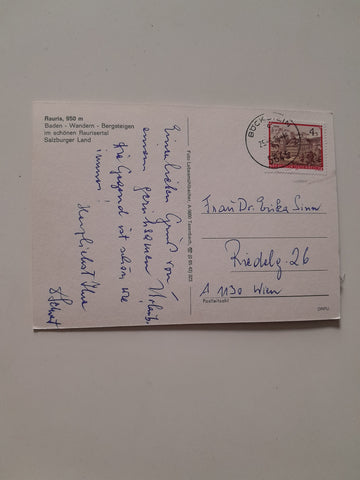 Rauris, 950 m
Baden - Wandern - Bergsteigen
im schönen Raurisertal
Salzburger Land
Einen lieben Gruß von
einem geruhsamen Urlaub.
Die Gegend ist schön wie
immer!
Herzlichst Ihre
Foto Lebesmühlbacher, A-5660 Taxenbach
Frau Dr. Erika Sinn
Riedelg. 26
A 1130 Wien
Postleitzahl
4